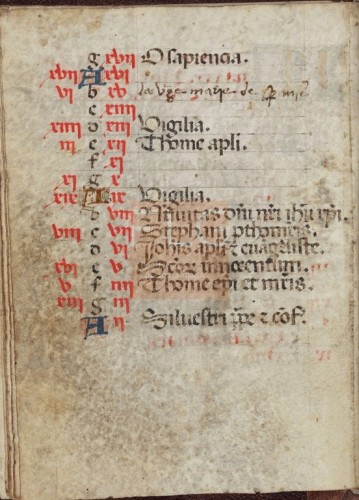 g xvii O sapiencia.
xvii A xvi
vi b xv la vge marie de
c xiiii
xiiii d xiii Vigilia.
iii e xii Thome apli.
f xi
xi g x
xix A ix Vigilia.
b viii Nativitas dñi nr̃i ihũ xp̃i.
viii c vii Stephani pthomr̃is.
d vi Joh̃is apl̃i ⁊ euãgliste.
xvi e v Scõr innocentum.
v f iiii Thome epi et mr̃is.
xiii g iii
A ii Siluestri pp̃e ⁊ cõf.